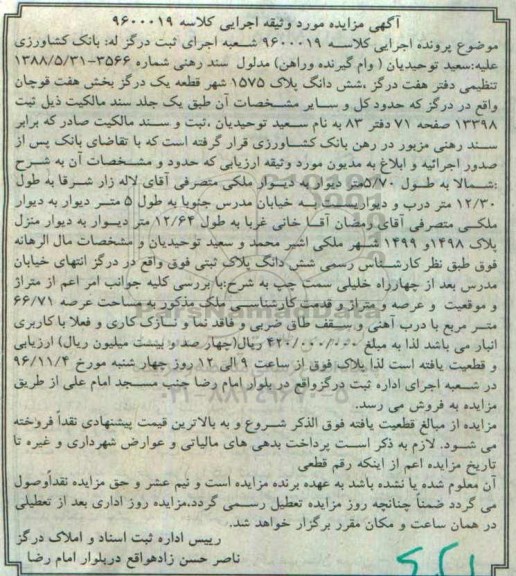 آگهی مزایده مورد وثیقه اجرایی کلاسه ۹۶۰۰۰۱۹
موضوع پرونده اجرایی کلاسه ۹۶۰۰۰۱۹ شعبه اجرای ثبت درگز له: بانک کشاورزی
علیه:سعید توحیدیان ( وام گیرنده وراهن) مدلول سند رهنی شماره ۳۵۶۶-۱۳۸۸/۵/۳۱
تنظیمی دفتر هفت درگز ،شش دانگ پلاک ۱۵۷۵ شهر قطعه یک درگز بخش هفت قوچان
واقع در درگز که حدود کل و سایر مشخصات آن طبق یک جلد سند مالکیت ذیل ثبت
۱۳۳۹۸ صفحه ۷۱ دفتر ۸۳ به نام سعید توحیدیان ،ثبت و سند مالکیت صادر که برابر
سند رهنی مزبور در رهن بانک کشاورزی قرار گرفته است که با تقاضای بانک پس از
صدور اجرائیه و ابلاغ به مدیون مورد وثیقه ارزیابی که حدود و مشخصات آن به شرح
:شمالا به طول ۵/۷۰متر دیوار به دیوار ملکی متصرفی آقای لاله زار شرقا به طول
۱۲/۳۰ متر درب و دیوار به خیابان مدرس جنوبا به طول ۵ متر دیوار به دیوار
ملکی متصرفی آقای رمضان آقا خانی غربا به طول ۱۲/۶۴ متر دیوار به دیوار منزل
پلاک ۱۴۹۸و ۱۴۹۹ شهر ملکی اشیر محمد و سعید توحیدیان و مشخصات مال الرهانه
فوق طبق نظر کارشناس رسمی شش دانگ پلاک ثبتی فوق واقع در درگز انتهای خیابان
مدرس بعد از چهارراه خلیلی سمت چپ به شرح:با بررسی کلیه جوانب امر اعم از متراژ
و موقعیت و عرصه و متراژ و قدمت کارشناسی ملک مذکور به مساحت عرصه ۶۶/۷۱
متر مربع با درب آهنی و سقف طاق ضربی و فاقد نما و نازک کاری و فعلا با کاربری
انبار می باشد لذا به مبلغ ۴۲۰/۰۰۰/۰۰۰ ریال(چهار صد و بیست میلیون ریال) ارزیابی
و قطعیت یافته است لذا پلاک فوق از ساعت ۹ الی ۱۲ روز چهار شنبه مورخ ۹۶/۱۱/۴
در شعبه اجرای اداره ثبت درگزواقع در بلوار امام رضا جنب مسجد امام علی از طریق
مزایده به فروش می رسد.
مزایده از مبالغ قطعیت یافته فوق الذکر شروع و به بالاترین قیمت پیشنهادی نقداً فروخته
می شود. لازم به ذکر است پرداخت بدهی های مالیاتی و عوارض شهرداری و غیره تا
تاریخ مزایده اعم از اینکه رقم قطعی
آن معلوم شده یا نشده باشد به عهده برنده مزایده است و نیم عشر و حق مزایده نقداًوصول
می گردد ضمناً چنانچه روز مزایده تعطیل رسمی گردد،مزایده روز اداری بعد از تعطیلی
در همان ساعت و مکان مقرر برگزار خواهد شد.
رییس اداره ثبت اسناد و املاک درگز
ناصر حسن زادهواقع دربلوار امام رضا
ParsNamadData
۰۲۱-۸۸۳۴۹۶۷۰-۵